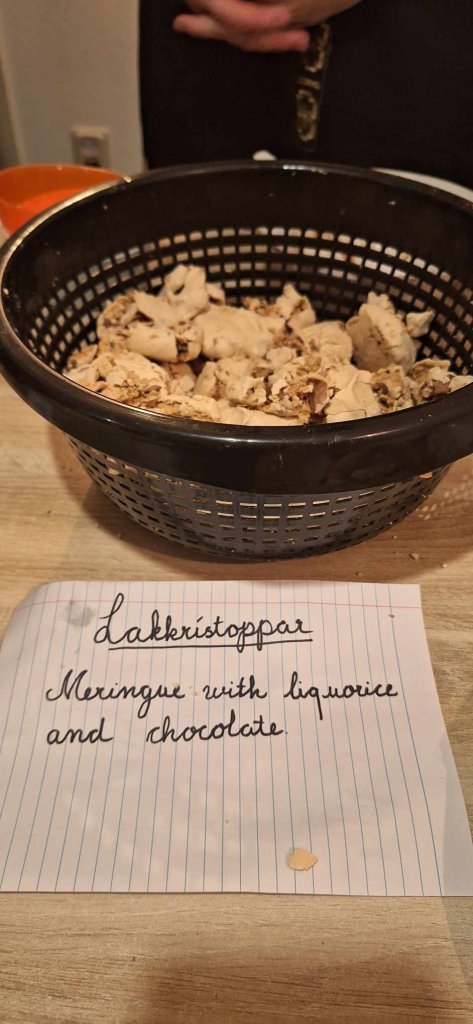 Lakkrístoppar
Meringue with liquorice
and chocolate.